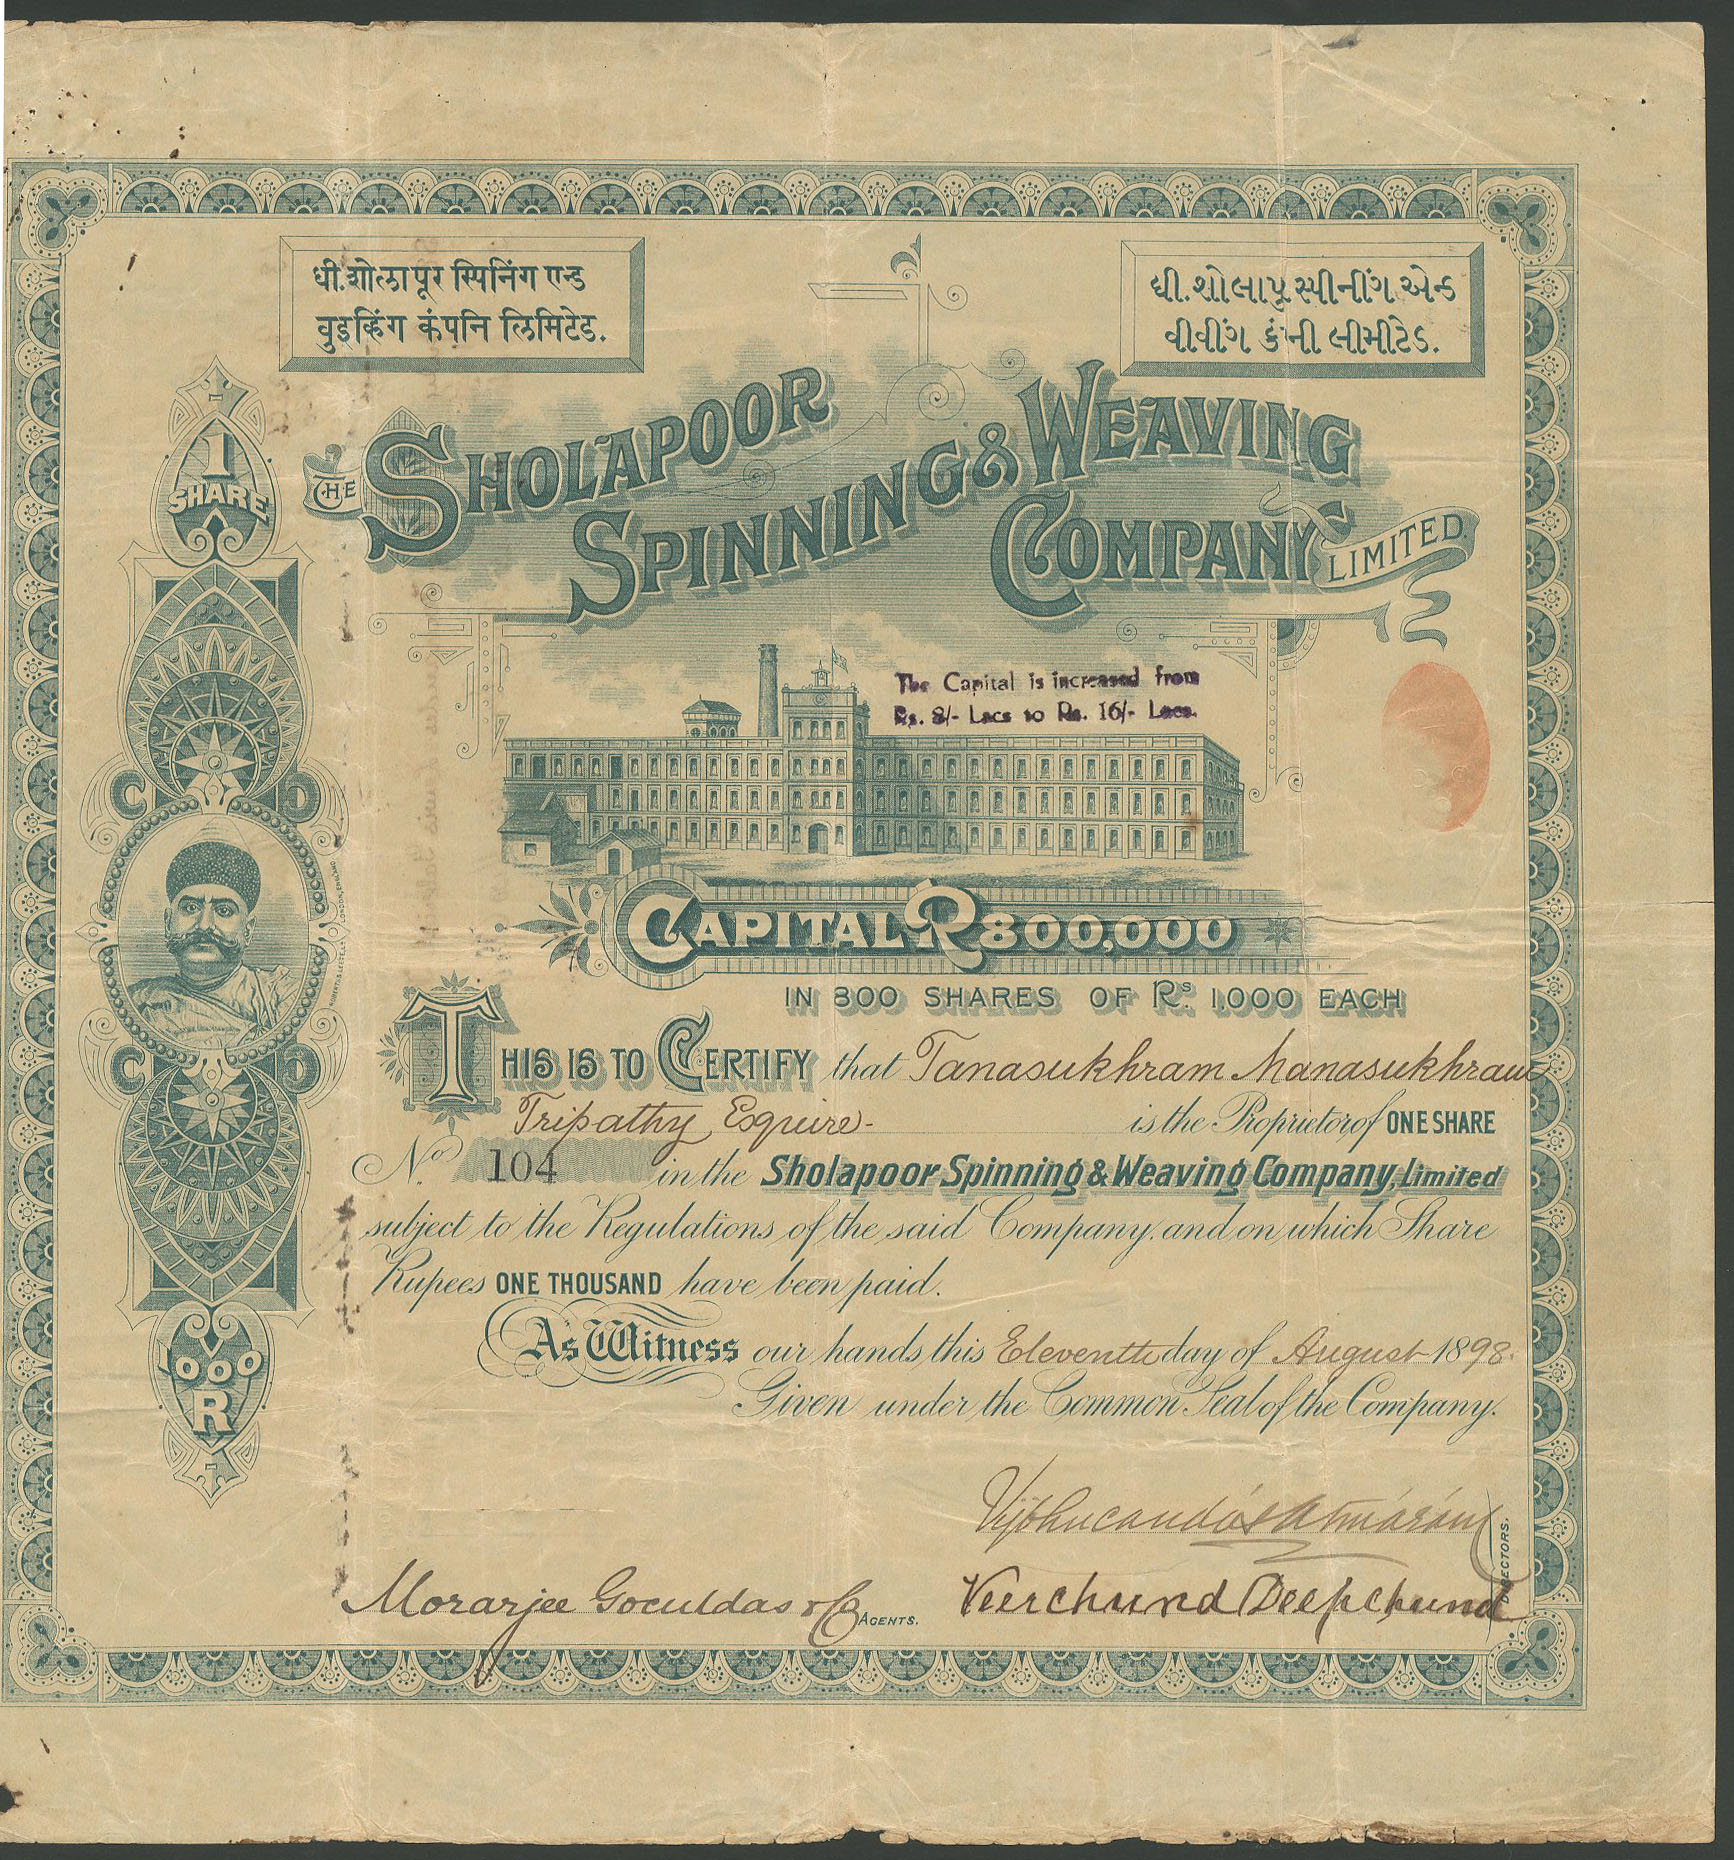 धी.शोलापूर स्पिनिंग एन्ड
वुइव्हिंग कंपनि लिमिटेड.
ધી.શોલાપૂર સ્પીનીંગ એન્ડ
વીવીંગ કંપની લીમીટેડ.
1
SHARE
THE SHOLAPOOR
SPINNING & WEAVING
COMPANY LIMITED.
The Capital is increased from
Rs. 8/- Lacs to Rs. 16/- Lacs.
CAPITAL R 800,000
IN 800 SHARES OF Rs. 1,000 EACH
THIS IS TO CERTIFY that Tanasukhram Manasukhram
Tripathy Esquire- is the Proprietor of ONE SHARE
No. 104 in the Sholapoor Spinning & Weaving Company, Limited
subject to the Regulations of the said Company, and on which Share
Rupees ONE THOUSAND have been paid.
As Witness our hands, this Eleventh day of August 1898.
Given under the Common Seal of the Company.
1000
R
DIRECTORS.
Morarjee Goculdas & Co AGENTS.
Veerchund Deepchund